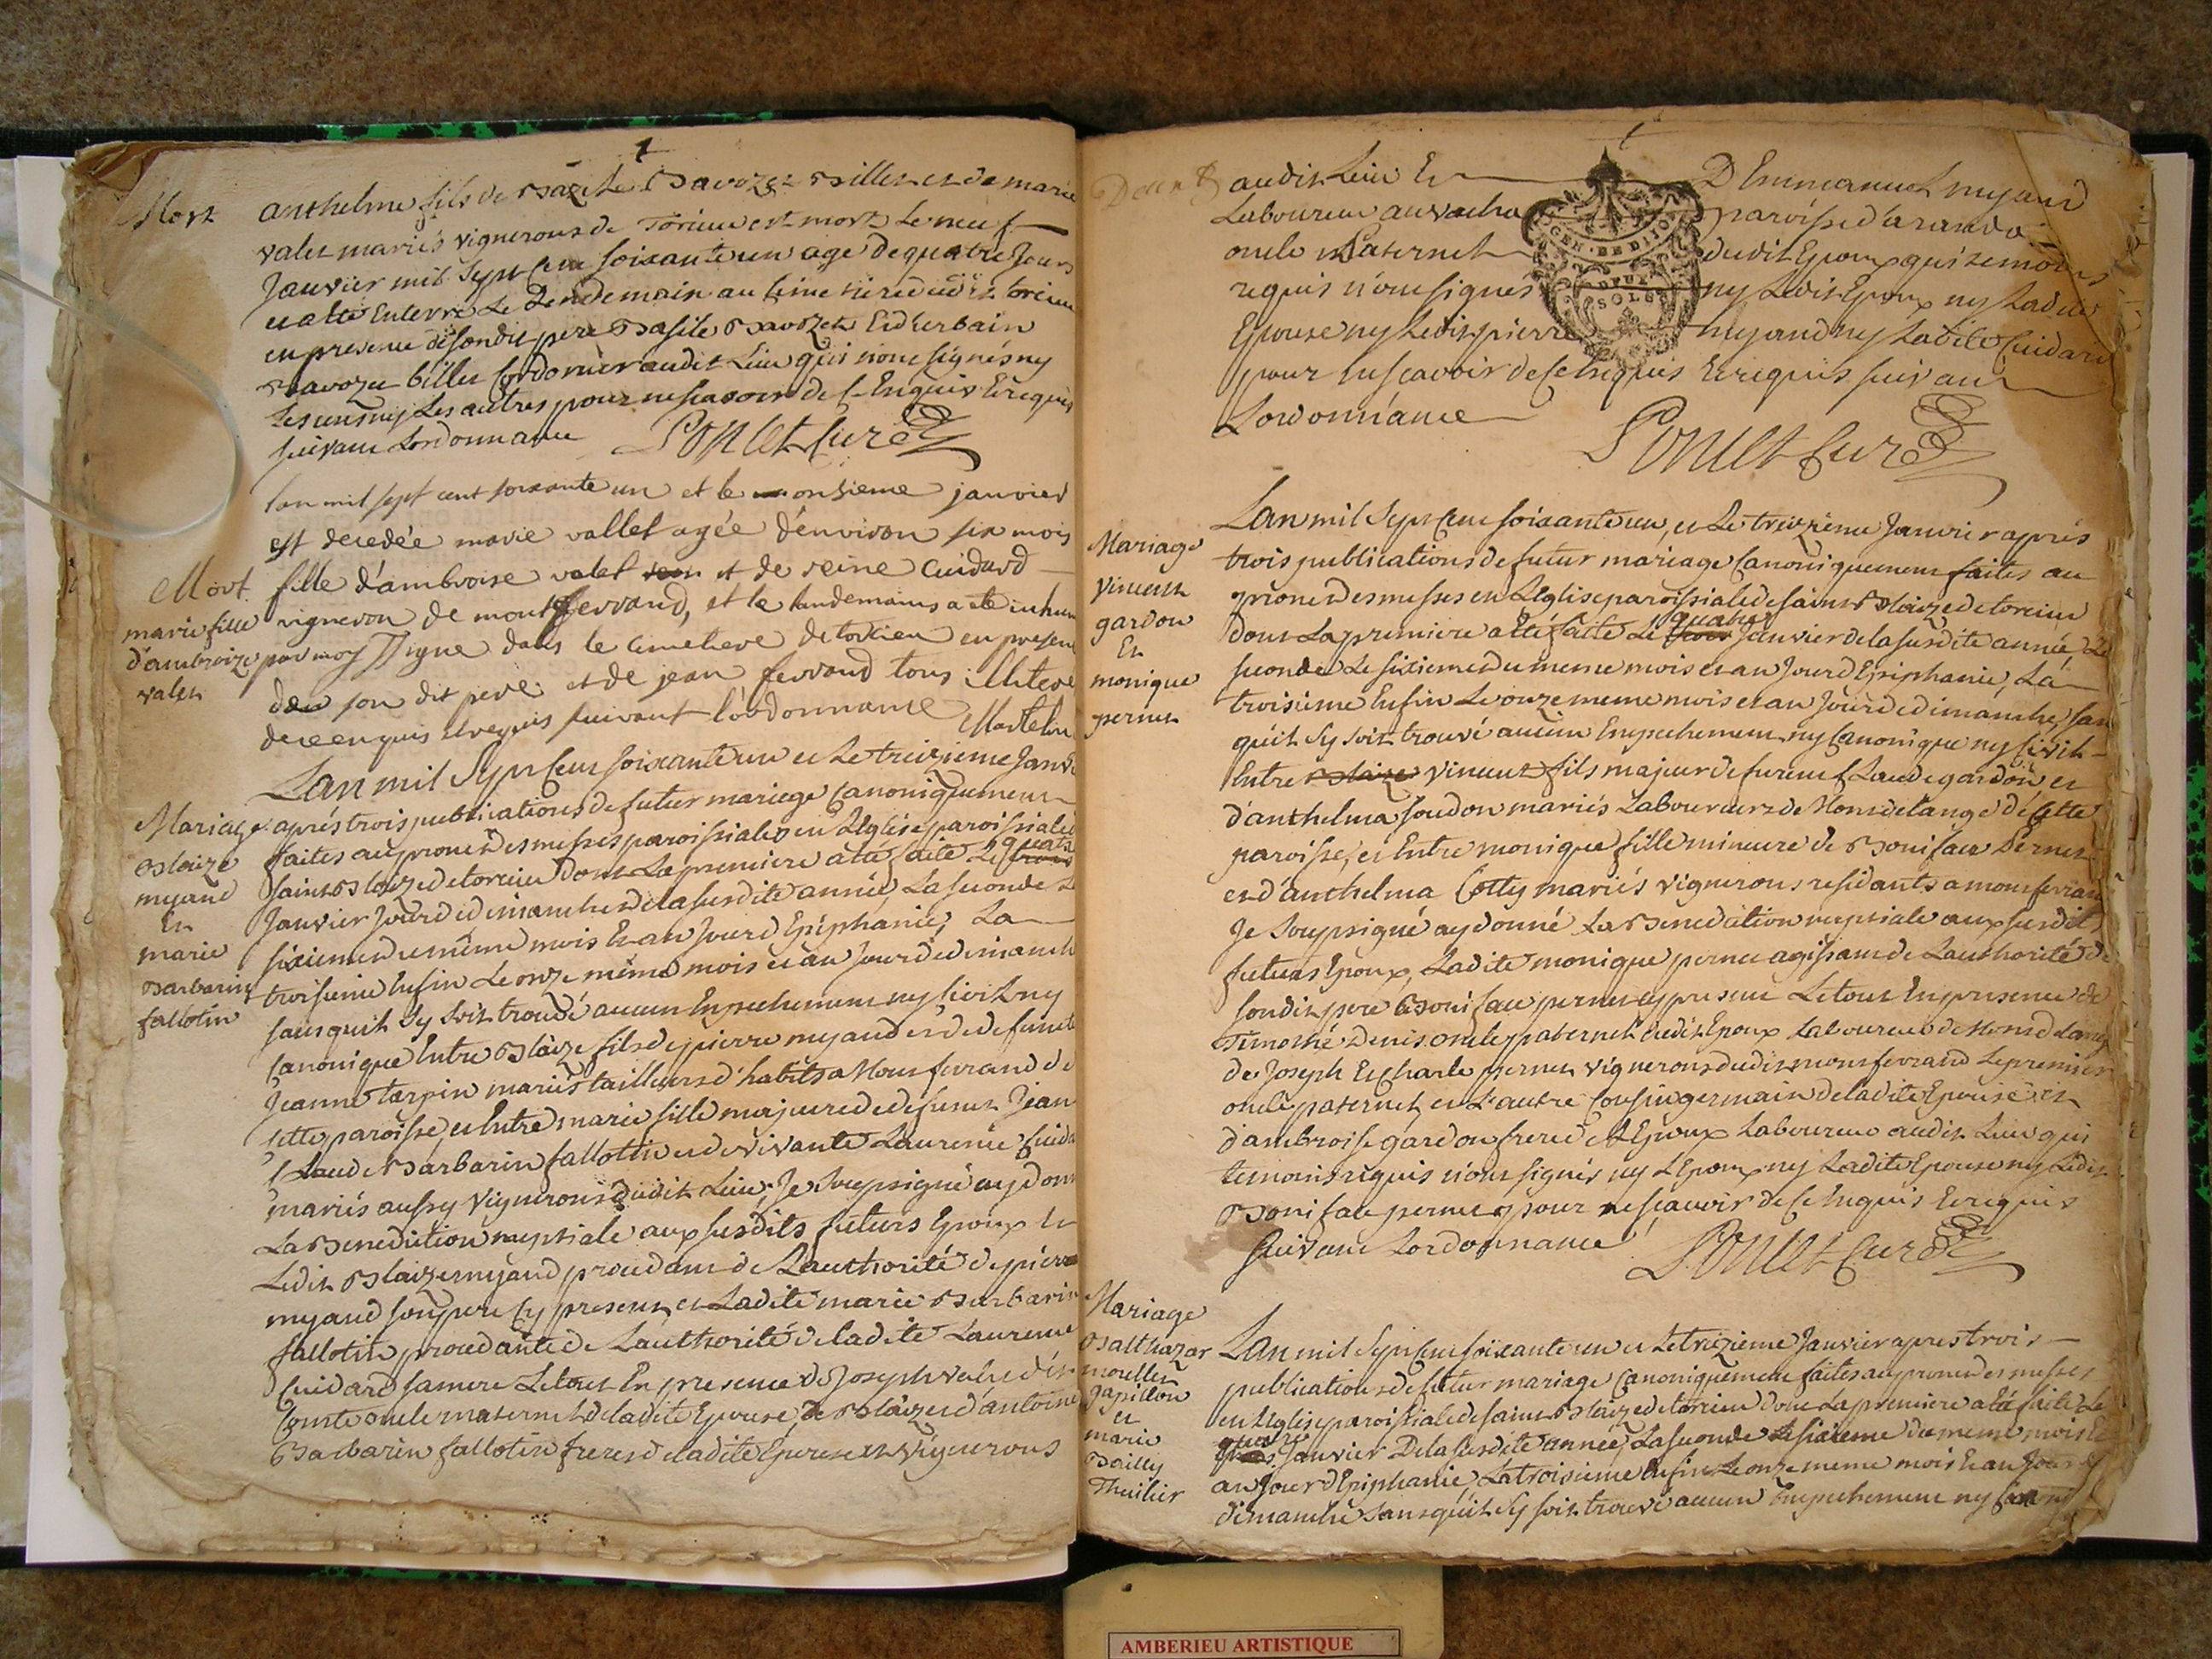 Mort
anthelme fils de Bazile Bavozet Billet et de marie
valet mariés vignerons de Torcieu est mort le neuf
Janvier mil sept cent soixante un age de quatre Jours
et a été Enterré le Lendemain au cimetiere dudit torcieu
en presence de sondit pere Basile Bavozet et d'urbain
Bavozet billet Cordonnier audit Lieu qui n'ont signés ny
Les uns ny Les autres pour ne scavoir de ce Enquis Et requis
suivant Lordonnance Poncet Curé
lan mil sept cent soixante un et le onsieme janvier
est decedée marie vallet agée d'environ six mois
Mort
marie fille
d'ambroize
valet
fille d'ambroise valet et de reine Cuidard
vigneron de montferrand, et le landemains a été inhum
par moy signe dans le cimetiere de torcieu en presen
de son dit pere et de jean ferrand tous illitere
de ce enquis et requis suivant l'ordonnance Martelin
Mariage
Blaize
myand
Et
marie
Barbarin
fallotin
Lan mil sept Cent soixante un et Le treizieme Janvi
aprés trois publications de futur mariage Canoniquement
faites au prone des messes paroissiales en L'Eglise paroissiale
saint Blaize de torcieu dont La premiere a été faite Le trois quatre
Janvier Jour de dimanche de la susdite année, La seconde Le
sixieme du même mois Et an Jour d'Epiphanie, La
troisieme Enfin Le onze même mois et an Jour de dimanch
sans qu'il s'y soit trouvé aucun Empechement ny civil ny
Canonique Entre Blaize fils de pierre myand et de defunte
Jeanne tarpin mariés tailleurs d'habits a Montferrand de
cette paroisse, et Entre marie fille majeure de defunt Jean
Claude Barbarin fallotin et de vivante Laurence Cuida
mariés aussy vignerons dudit Lieu; Je soussigné ay donn
La Benediction nuptiale aux susdits futurs Epoux Et
Ledit Blaize myand procedant de L'authorité de pierre
myand son pere Cy present, et Ladite marie Barbarin
fallotin procedante de L'authorité de ladite Laurence
Cuidard sa mere Le tout En presence de Joseph valet dit
Comte oncle maternel de ladite Epouse, de Blaize et d'antoine
Barbarin fallotin freres de ladite Epouse et vignerons
audit Lieu Et D'Emmanuel myand
Laboureur au vacha paroisse d'arando
oncle Paternel dudit Epoux qui temoins
requis n'ont signés ny Ledit Epoux ny Ladite
Epouse ny Ledit pierre myand ny Ladite Cuidard
pour ne scavoir de ce Enquis Et requis suivant
Lordonnance Poncet Curé
GEN · DE DIJO
DEUX
SOLS
Mariage
vincent
gardon
Et
monique
pernet
Lan mil sept Cent soixante un, et Le treizieme Janvier aprés
trois publications de futur mariage Canoniquement faites au
prone des messes en L'Eglise paroissiale de saint Blaize de torcieu
dont La premiere a été faite Le trois quatre Janvier de la susdite année La
seconde Le sixieme du meme mois et an Jour d'Epiphanie, La
troisieme Enfin Le onze meme mois et an Jour de dimanche, san
qu'il s'y soit trouvé aucun Empechement ny Canonique ny Civil
Entre Blaize vincent fils majeur de furent Claude gardon et
d'anthelma soudon mariés Laboureurs de Mons de lange de Cette
paroisse, et Entre monique fille mineure de Boniface Pernet
et d'anthelma Cottey mariés vignerons residants a montferrand
Je soussigné ay donné La Benediction nuptiale aux susdits
futurs Epoux, Ladite monique pernet agissant de L'authorité de
son dit pere Boniface pernet cy present Le tout En presence de
Timothé Denis oncle paternel dudit Epoux Laboureur de Mons de lange
de Joseph Et Charle pernet vignerons dudit montferrand Le premier
oncle paternel et L'autre Cousin germain de ladite Epouse et
d'ambroise gardon frere de L'Epoux Laboureur audit Lieu qui
temoins requis n'ont signés ny L'Epoux ny Ladite Epouse ny Ledit
Boniface pernet pour ne scavoir de ce Enquis Et requis
suivant Lordonnance Poncet Curé
Mariage
Balthazar
moullet
gapillon
et
marie
Bailly
Thuilier
Lan mil sept Cent soixante un et Le treizieme Janvier apres trois
publications de futur mariage Canoniquement faites au prone des messes
en L'Eglise paroissiale de saint Blaize de torcieu dont La premiere a été faite Le
quatre Janvier De la susdite année, La seconde Le sixieme du meme mois Et
an Jour d'Epiphanie, La troisieme Enfin Le onze meme mois Et an Jour de
dimanche sans qu'il s'y soit trouvé aucun Empechement ny Canoni
AMBERIEU ARTISTIQUE